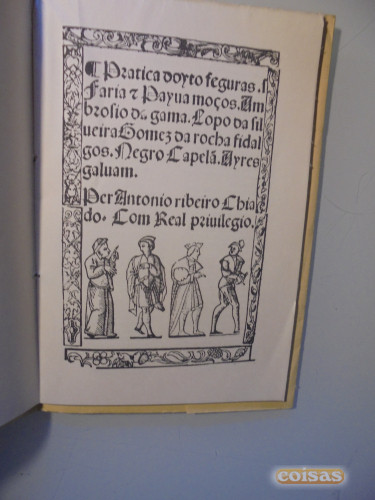 ¶ Pratica doyto feguras .s.
Faria ⁊ Payua moços. Am
brosio da gama. Lopo da sil
ueira Gomez da rocha fidal
gos. Negro Capelã. Ayres
galuam.
Per Antonio ribeiro Chia
do. Com Real priuilegio.
coisas